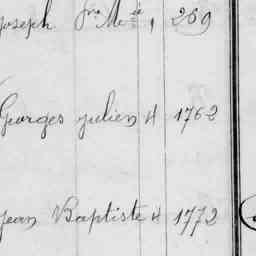 Joseph Jne Me 1, 269
Georges julien 4 1762
Jean Baptiste 4 1772